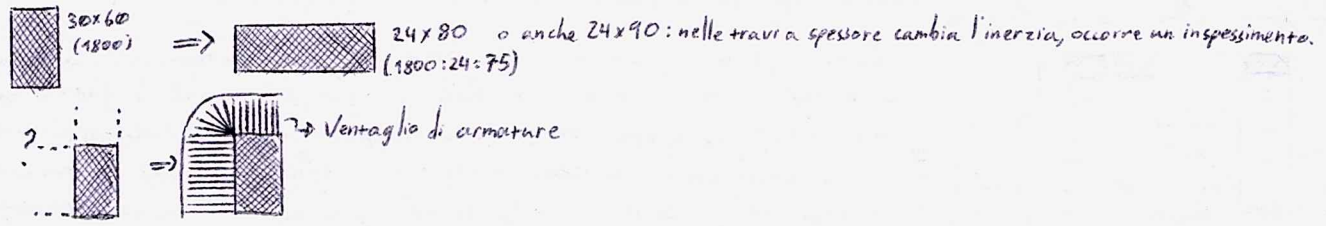 30x60
(1800)
24x80 o anche 24x90: nelle travi a spessore cambia l'inerzia, occorre un inspessimento.
(1800:24=75)
?
Ventaglio di armature